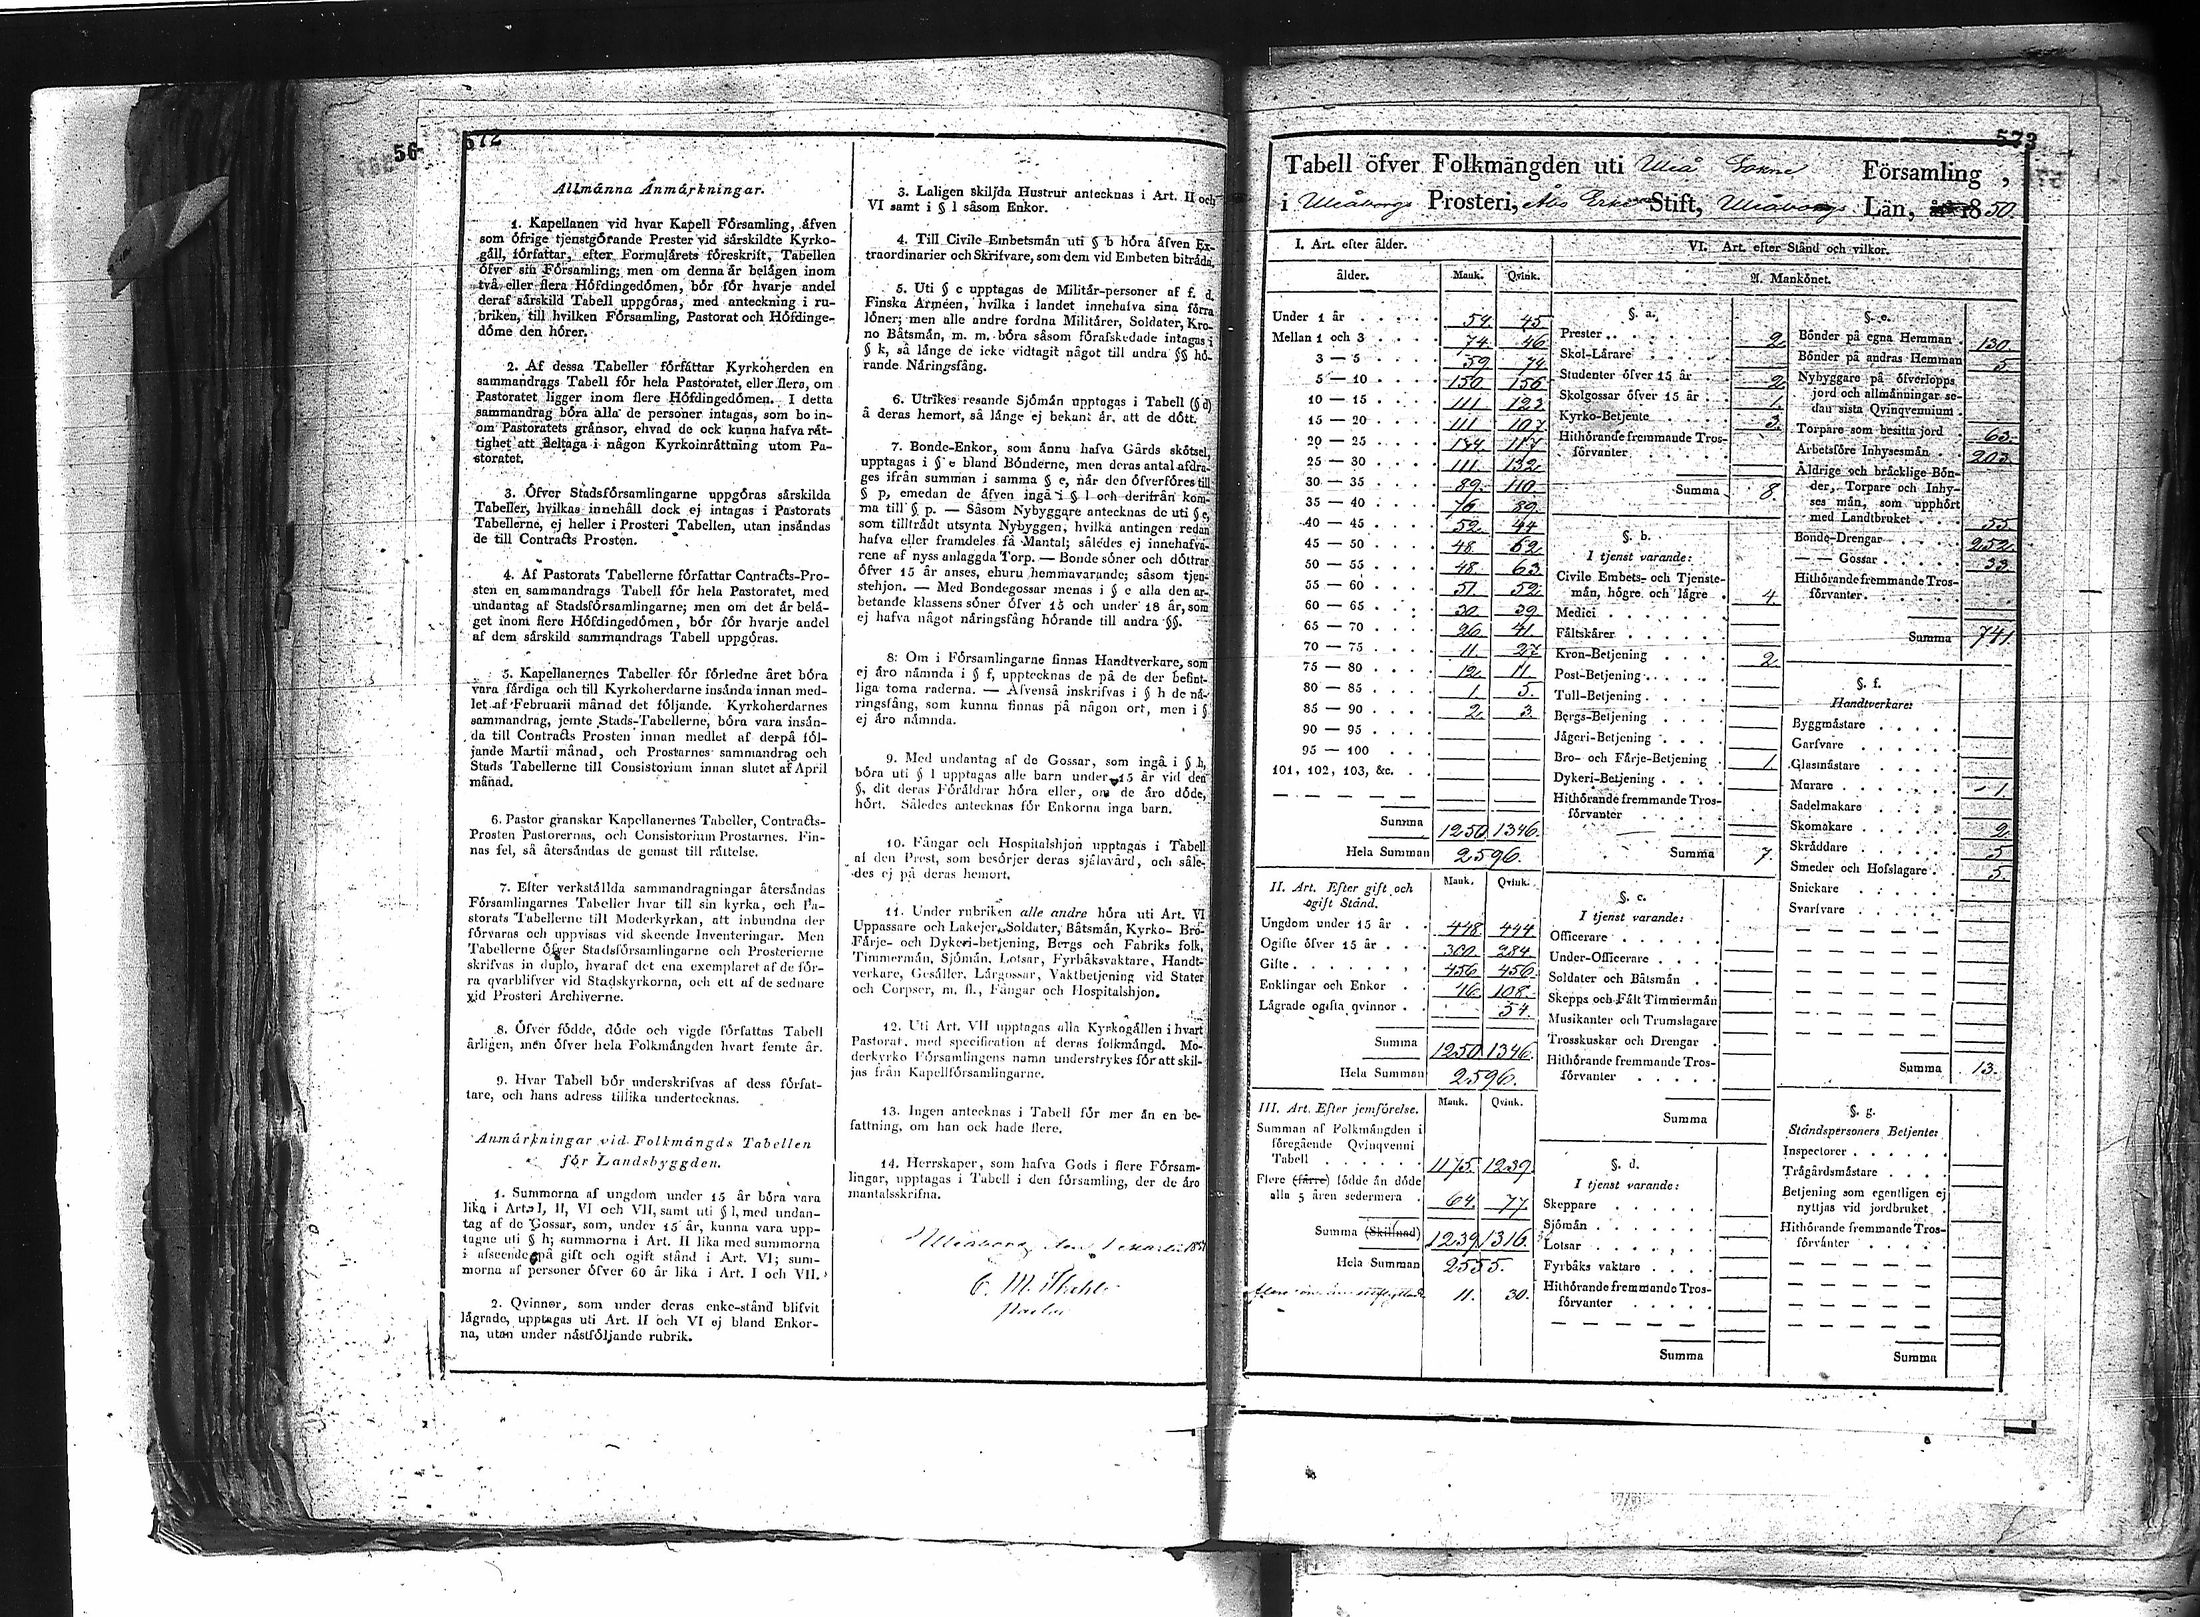 56
572
Allmänna Anmärkningar.
1. Kapellanen vid hvar Kapell Församling, äfven
som öfrige tjenstgörande Prester vid särskildte Kyrko-
gäll, författar, efter Formulärets föreskrift, Tabellen
öfver sin Församling; men om denna är belägen inom
två eller flera Höfdingedömen, bör för hvarje andel
deraf särskild Tabell uppgöras, med anteckning i ru-
briken, till hvilken Församling, Pastorat och Höfdinge-
döme den hörer.
2. Af dessa Tabeller författar Kyrkoherden en
sammandrags Tabell för hela Pastoratet, eller flera, om
Pastoratet ligger inom flere Höfdingedömen. I detta
sammandrag böra alla de personer intagas, som bo in-
om Pastoratets gränsor, ehvad de ock kunna hafva rät-
tighet att deltaga i någon Kyrkoinrättning utom Pa-
storatet.
3. Öfver Stadsförsamlingarne uppgöras särskilda
Tabeller, hvilkas innehåll dock ej intagas i Pastorats
Tabellerne, ej heller i Prosteri Tabellen, utan insändas
de till Contracts Prosten.
4. Af Pastorats Tabellerne författar Contracts-Pro-
sten en sammandrags Tabell för hela Pastoratet, med
undantag af Stadsförsamlingarne; men om det är belä-
get inom flere Höfdingedömen, bör för hvarje andel
af dem särskild sammandrags Tabell uppgöras.
5. Kapellanernes Tabeller för förledne året böra
vara färdiga och till Kyrkoherdarne insända innan med-
let af Februarii månad det följande. Kyrkoherdarnes
sammandrag, jemte Stads-Tabellerne, böra vara insän-
da till Contracts Prosten innan medlet af derpå föl-
jande Martii månad, och Prostarnes sammandrag och
Stads Tabellerne till Consistorium innan slutet af April
månad.
6. Pastor granskar Kapellanernes Tabeller, Contracts-
Prosten Pastorernas, och Consistorium Prostarnes. Fin-
nas fel, så återsändas de genast till rättelse.
7. Efter verkställda sammandragningar återsändas
Församlingarnes Tabeller hvar till sin kyrka, och Pa-
storats Tabellerne till Moderkyrkan, att inbundna der
förvaras och uppvisas vid skeende Inventeringar. Men
Tabellerne öfver Stadsförsamlingarne och Prosterierne
skrifvas in duplo, hvaraf det ena exemplaret af de för-
ra qvarblifver vid Stadskyrkorna, och ett af de sednare
vid Prosteri Archiverne.
8. Öfver födde, döde och vigde författas Tabell
årligen, men öfver hela Folkmängden hvart femte år.
9. Hvar Tabell bör underskrifvas af dess författ-
tare, och hans adress tillika undertecknas.
Anmärkningar vid Folkmängds Tabellen
för Landsbyggden.
1. Summorna af ungdom under 15 år böra vara
lika i Art. I, II, VI och VII, samt uti § l, med undan-
tag af de Gossar, som, under 15 år, kunna vara upp-
tagne uti § h; summorna i Art. II lika med summorna
i afseende på gift och ogift stånd i Art. VI; sum-
morna af personer öfver 60 år lika i Art. I och VII.
2. Qvinnor, som under deras enke-stånd blifvit
lägrade, upptagas uti Art. II och VI ej bland Enkor-
na, utan under nästföljande rubrik.
3. Laligen skiljda Hustrur antecknas i Art. II och
VI samt i § l såsom Enkor.
4. Till Civile Embetsmän uti § b höra äfven Ex-
traordinarier och Skrifvare, som dem vid Embeten biträda.
5. Uti § c upptagas de Militär-personer af f. d.
Finska Arméen, hvilka i landet innehafva sina förra
löner; men alle andre fordna Militärer, Soldater, Kro-
no Båtsmän, m. m. böra såsom förafskedade intagas i
§ k, så länge de icke vidtagit något till andra §§ hö-
rande Näringsfång.
6. Utrikes resande Sjömän upptagas i Tabell (§ d)
å deras hemort, så länge ej bekant är, att de dött.
7. Bonde-Enkor, som ännu hafva Gårds skötsel,
upptagas i § e bland Bönderne, men deras antal afdra-
ges ifrån summan i samma § e, når den öfverföres till
§ p, emedan de äfven ingå i § l och derifrån kom-
ma till § p. — Såsom Nybyggare antecknas de uti § e,
som tillträdt utsynta Nybyggen, hvilka antingen redan
hafva eller framdeles få Mantal; således ej innehafva-
rene af nyss anlaggda Torp. — Bonde söner och döttrar
öfver 15 år anses, ehuru hemmavarande, såsom tjen-
stehjon. — Med Bondegossar menas i § e alla den ar-
betande klassens söner öfver 15 och under 18 år, som
ej hafva något näringsfång hörande till andra §§.
8: Om i Församlingarne finnas Handtverkare, som
ej äro nämnda i § f, upptecknas de på de der befint-
liga toma raderna. — Äfvenså inskrifvas i § h de nä-
ringsfång, som kunna finnas på någon ort, men i §
ej äro nämnda.
9. Med undantag af de Gossar, som ingå i § h,
böra uti § l upptagas alle barn under 15 år vid den
§, dit deras Föräldrar höra eller, om de äro döde,
hört. Således antecknas för Enkorna inga barn.
10. Fångar och Hospitalshjon upptagas i Tabell
af den Prest, som besörjer deras själavård, och såle-
des ej på deras hemort.
11. Under rubriken alle andre höra uti Art. VI
Uppassare och Lakejer, Soldater, Båtsmän, Kyrko- Bro-
Färje- och Dykeri-betjening, Bergs och Fabriks folk,
Timmermän, Sjömän, Lotsar, Fyrbåksvaktare, Handt-
verkare, Gesäller, Lärgossar, Vaktbetjening vid Stater
och Corpser, m. fl., Fångar och Hospitalshjon.
12. Uti Art. VII upptagas alla Kyrkogällen i hvart
Pastorat, med specification af deras folkmängd. Mo-
derkyrko Församlingens namn understrykes för att skil-
jas från Kapellförsamlingarne.
13. Ingen antecknas i Tabell för mer än en be-
fattning, om han ock hade flere.
14. Herrskaper, som hafva Gods i flere Försam-
lingar, upptagas i Tabell i den församling, der de äro
mantalsskrifna.
Uleåborg den 1 Martii 1851
573
Tabell öfver Folkmängden uti Uleå Sokne Församling,
i Uleåborgs Prosteri, Åbo Erke Stift, Uleåborgs Län, år 1850.
I. Art. efter ålder.
ålder. Mank. Qvink.
Under 1 år 54. 45.
Mellan 1 och 3 74. 46
3 — 5 59 74.
5 — 10 150 156
10 — 15 111 123
15 — 20 111 107
20 — 25 134 117
25 — 30 111 132
30 — 35 89. 110
35 — 40 76 89.
40 — 45 52. 44
45 — 50 48. 62
50 — 55 48. 63
55 — 60 51. 52
60 — 65 30 39.
65 — 70 26 41.
70 — 75 11. 27
75 — 80 12. 11.
80 — 85 1. 5.
85 — 90 2. 3.
90 — 95
95 — 100
101, 102, 103, &c.
Summa 1250 1346.
Hela Summan 2596.
II. Art. Efter gift och
ogift Stånd. Mank. Qvink.
Ungdom under 15 år 448. 444
Ogifte öfver 15 år 300. 284.
Gifte 456 456
Enklingar och Enkor 46. 108.
Lägrade ogifta qvinnor 54.
Summa 1250 1346.
Hela Summan 2596.
III. Art. Efter jemförelse. Mank. Qvink.
Summan af Folkmängden i
föregående Qvinqvenni
Tabell 1175. 1239.
Flere (färre) födde än döde
alla 5 åren sedermera 64. 77.
Summa (Skillnad) 1239 1316.
Hela Summan 2555.
utflyttade 11. 30.
VI. Art. efter Stånd och vilkor.
A. Mankönet.
§. a.
Prester 2.
Skol-Lärare
Studenter öfver 15 år 2.
Skolgossar öfver 15 år 1.
Kyrko-Betjente 3.
Hithörande fremmande Tros-
förvanter
Summa 8.
§. b.
I tjenst varande:
Civile Embets- och Tjenste-
män, högre och lägre 4.
Medici
Fältskärer
Kron-Betjening 2
Post-Betjening
Tull-Betjening
Bergs-Betjening
Jägeri-Betjening
Bro- och Färje-Betjening 1.
Dykeri-Betjening
Hithörande fremmande Tros-
förvanter
Summa 7.
§. c.
I tjenst varande:
Officerare
Under-Officerare
Soldater och Båtsmän
Skepps och Fält Timmermän
Musikanter och Trumslagare
Trosskuskar och Drengar
Hithörande fremmande Tros-
förvanter
Summa
§. d.
I tjenst varande:
Skeppare
Sjömän
Lotsar
Fyrbåks vaktare
Hithörande fremmande Tros-
förvanter
Summa
§. e.
Bönder på egna Hemman 130.
Bönder på andras Hemman 5
Nybyggare på öfverlopps
jord och allmänningar se-
dan sista Qvinqvennium
Torpare som besitta jord 63.
Arbetsföre Inhysesmän 203.
Åldrige och bräcklige Bön-
der, Torpare och Inhy-
ses män, som upphört
med Landtbruket 55.
Bonde-Drengar 252
— — Gossar 33.
Hithörande fremmande Tros-
förvanter
Summa 741
§. f.
Handtverkare:
Byggmästare
Garfvare
Glasmästare
Murare 1.
Sadelmakare
Skomakare 2
Skräddare 5
Smeder och Hofslagare 5.
Snickare
Svarfvare
Summa 13.
§. g.
Ståndspersoners Betjente:
Inspectorer
Trägårdsmästare
Betjening som egentligen ej
nyttjas vid jordbruket
Hithörande fremmande Tros-
förvanter
Summa